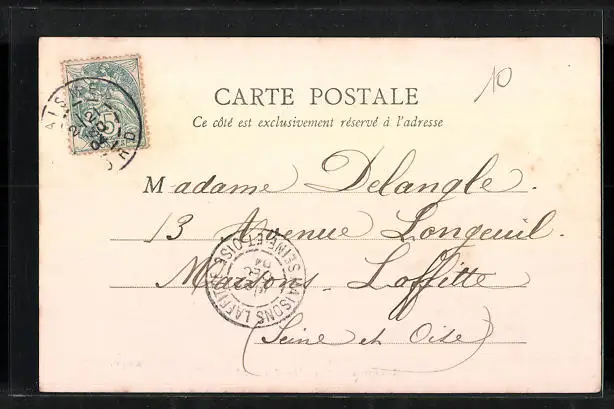 10
CARTE POSTALE
Ce côté est exclusivement réservé à l'adresse
Madame Delangle.
13 Avenue Longueuil.
Maisons-Laffitte
(Seine et Oise)
MAISONS-LAFFITTE
SEINE-ET-OISE
DEC
04